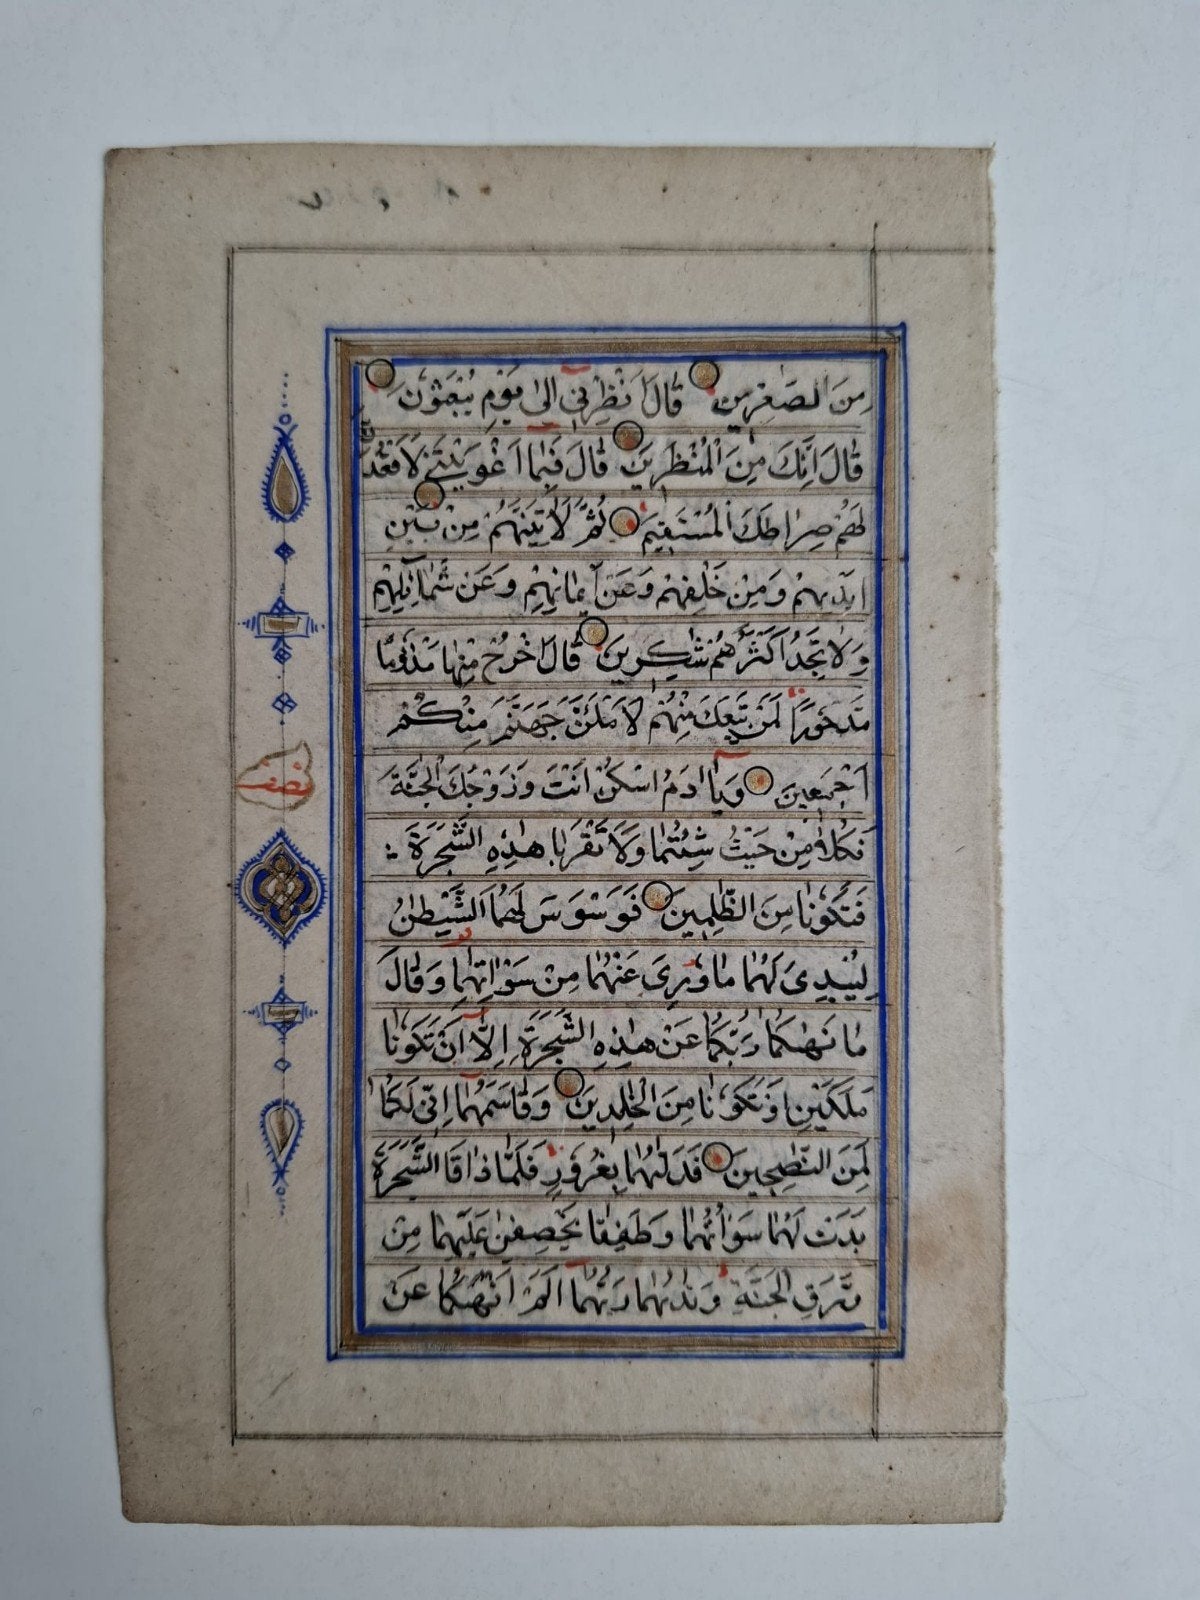 مِنَ الصّٰغِرِينَ قَالَ اَنْظِرْنِي اِلىٰ يَوْمِ يُبْعَثُونَ
قَالَ اِنَّكَ مِنَ الْمُنْظَرِينَ قَالَ فَبِمَا اَغْوَيْتَنِي لَاَقْعُدَنَّ
لَهُمْ صِرَاطَكَ الْمُسْتَقِيمَ ثُمَّ لَاٰتِيَنَّهُمْ مِنْ بَيْنِ
اَيْدِيهِمْ وَمِنْ خَلْفِهِمْ وَعَنْ اَيْمَانِهِمْ وَعَنْ شَمَائِلِهِمْ
وَلَا تَجِدُ اَكْثَرَهُمْ شٰكِرِينَ قَالَ اخْرُجْ مِنْهَا مَذْؤُمًا
مَدْحُورًا لَمَنْ تَبِعَكَ مِنْهُمْ لَاَمْلَئَنَّ جَهَنَّمَ مِنْكُمْ
اَجْمَعِينَ وَيَا اٰدَمُ اسْكُنْ اَنْتَ وَزَوْجُكَ الْجَنَّةَ
فَكُلَا مِنْ حَيْثُ شِئْتُمَا وَلَا تَقْرَبَا هٰذِهِ الشَّجَرَةَ
فَتَكُونَا مِنَ الظّٰلِمِينَ فَوَسْوَسَ لَهُمَا الشَّيْطٰنُ
لِيُبْدِيَ لَهُمَا مَا وُرِيَ عَنْهُمَا مِنْ سَوْاٰتِهِمَا وَقَالَ
مَا نَهٰيكُمَا رَبُّكُمَا عَنْ هٰذِهِ الشَّجَرَةِ اِلَّا اَنْ تَكُونَا
مَلَكَيْنِ اَوْ تَكُونَا مِنَ الْخٰلِدِينَ وَقَاسَمَهُمَا اِنِّي لَكُمَا
لَمِنَ النّٰصِحِينَ فَدَلّٰيهُمَا بِغُرُورٍ فَلَمَّا ذَاقَا الشَّجَرَةَ
بَدَتْ لَهُمَا سَوْاٰتُهُمَا وَطَفِقَا يَخْصِفٰنِ عَلَيْهِمَا مِنْ
وَرَقِ الْجَنَّةِ وَنَادٰيهُمَا رَبُّهُمَا اَلَمْ اَنْهَكُمَا عَنْ
نصف